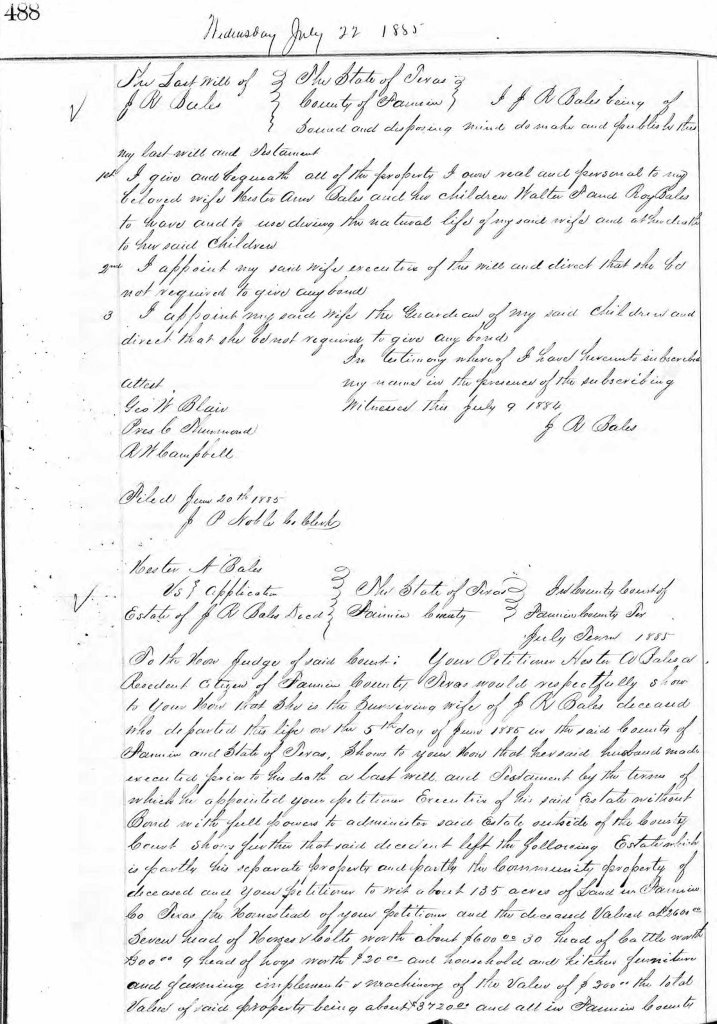 488
Wednesday July 22 1885
The Last Will of } The State of Texas }
J R Bales } County of Fannin } I J R Bales being of
sound and disposing mind do make and publish this
my last will and Testament
1st I give and bequeath all of the property I own real and personal to my
beloved wife Hester Ann Bales and her children Walter F and Roy Bales
to have and to use during the natural life of my said wife and at her death
to her said children
2nd I appoint my said wife executrix of this will and direct that she be
not required to give any bond
3 I appoint my said wife the Guardian of my said children and
direct that she be not required to give any bond
In testimony whereof I have hereunto subscribed
attest my name in the presence of the subscribing
Geo W Blair Witnesses this July 9 1884
Pres C Thurmond J R Bales
R W Campbell
Filed June 20th 1885
J P Noble Co Clerk
Hester A Bales
Vs } application } The State of Texas } In County Court of
Estate of J R Bales Decd } Fannin County } Fannin County Tex
July Term 1885
To the Hon Judge of said Court: Your Petitioner Hester A Bales a
Resedent citizen of Fannin County Texas would respectfully show
to your Hon that she is the surviving wife of J R Bales deceased
who departed this life on the 5th day of June 1885 in the said County of
Fannin and State of Texas. Shows to your Hon that her said husband made
executed prior to his death a last will and Testament by the terms of
which he appointed your petitioner Executrix of his said Estate without
Bond with full powers to administer said Estate outside of the County
Court shows further that said decedent left the following Estate which
is partly his separate property and partly the community property of
deceased and your petitioner to wit about 135 acres of Land in Fannin
Co Texas the Homestead of your petitioner and the deceased Valued at $2600 00
Seven head of Horses & colts worth about $600 00 30 head of cattle worth
$300 00 9 head of hogs worth $20 00 and household and kitchen furniture
and farming implements & machinery of the value of $200 00 the total
value of said property being about $3720 00 and all in Fannin County